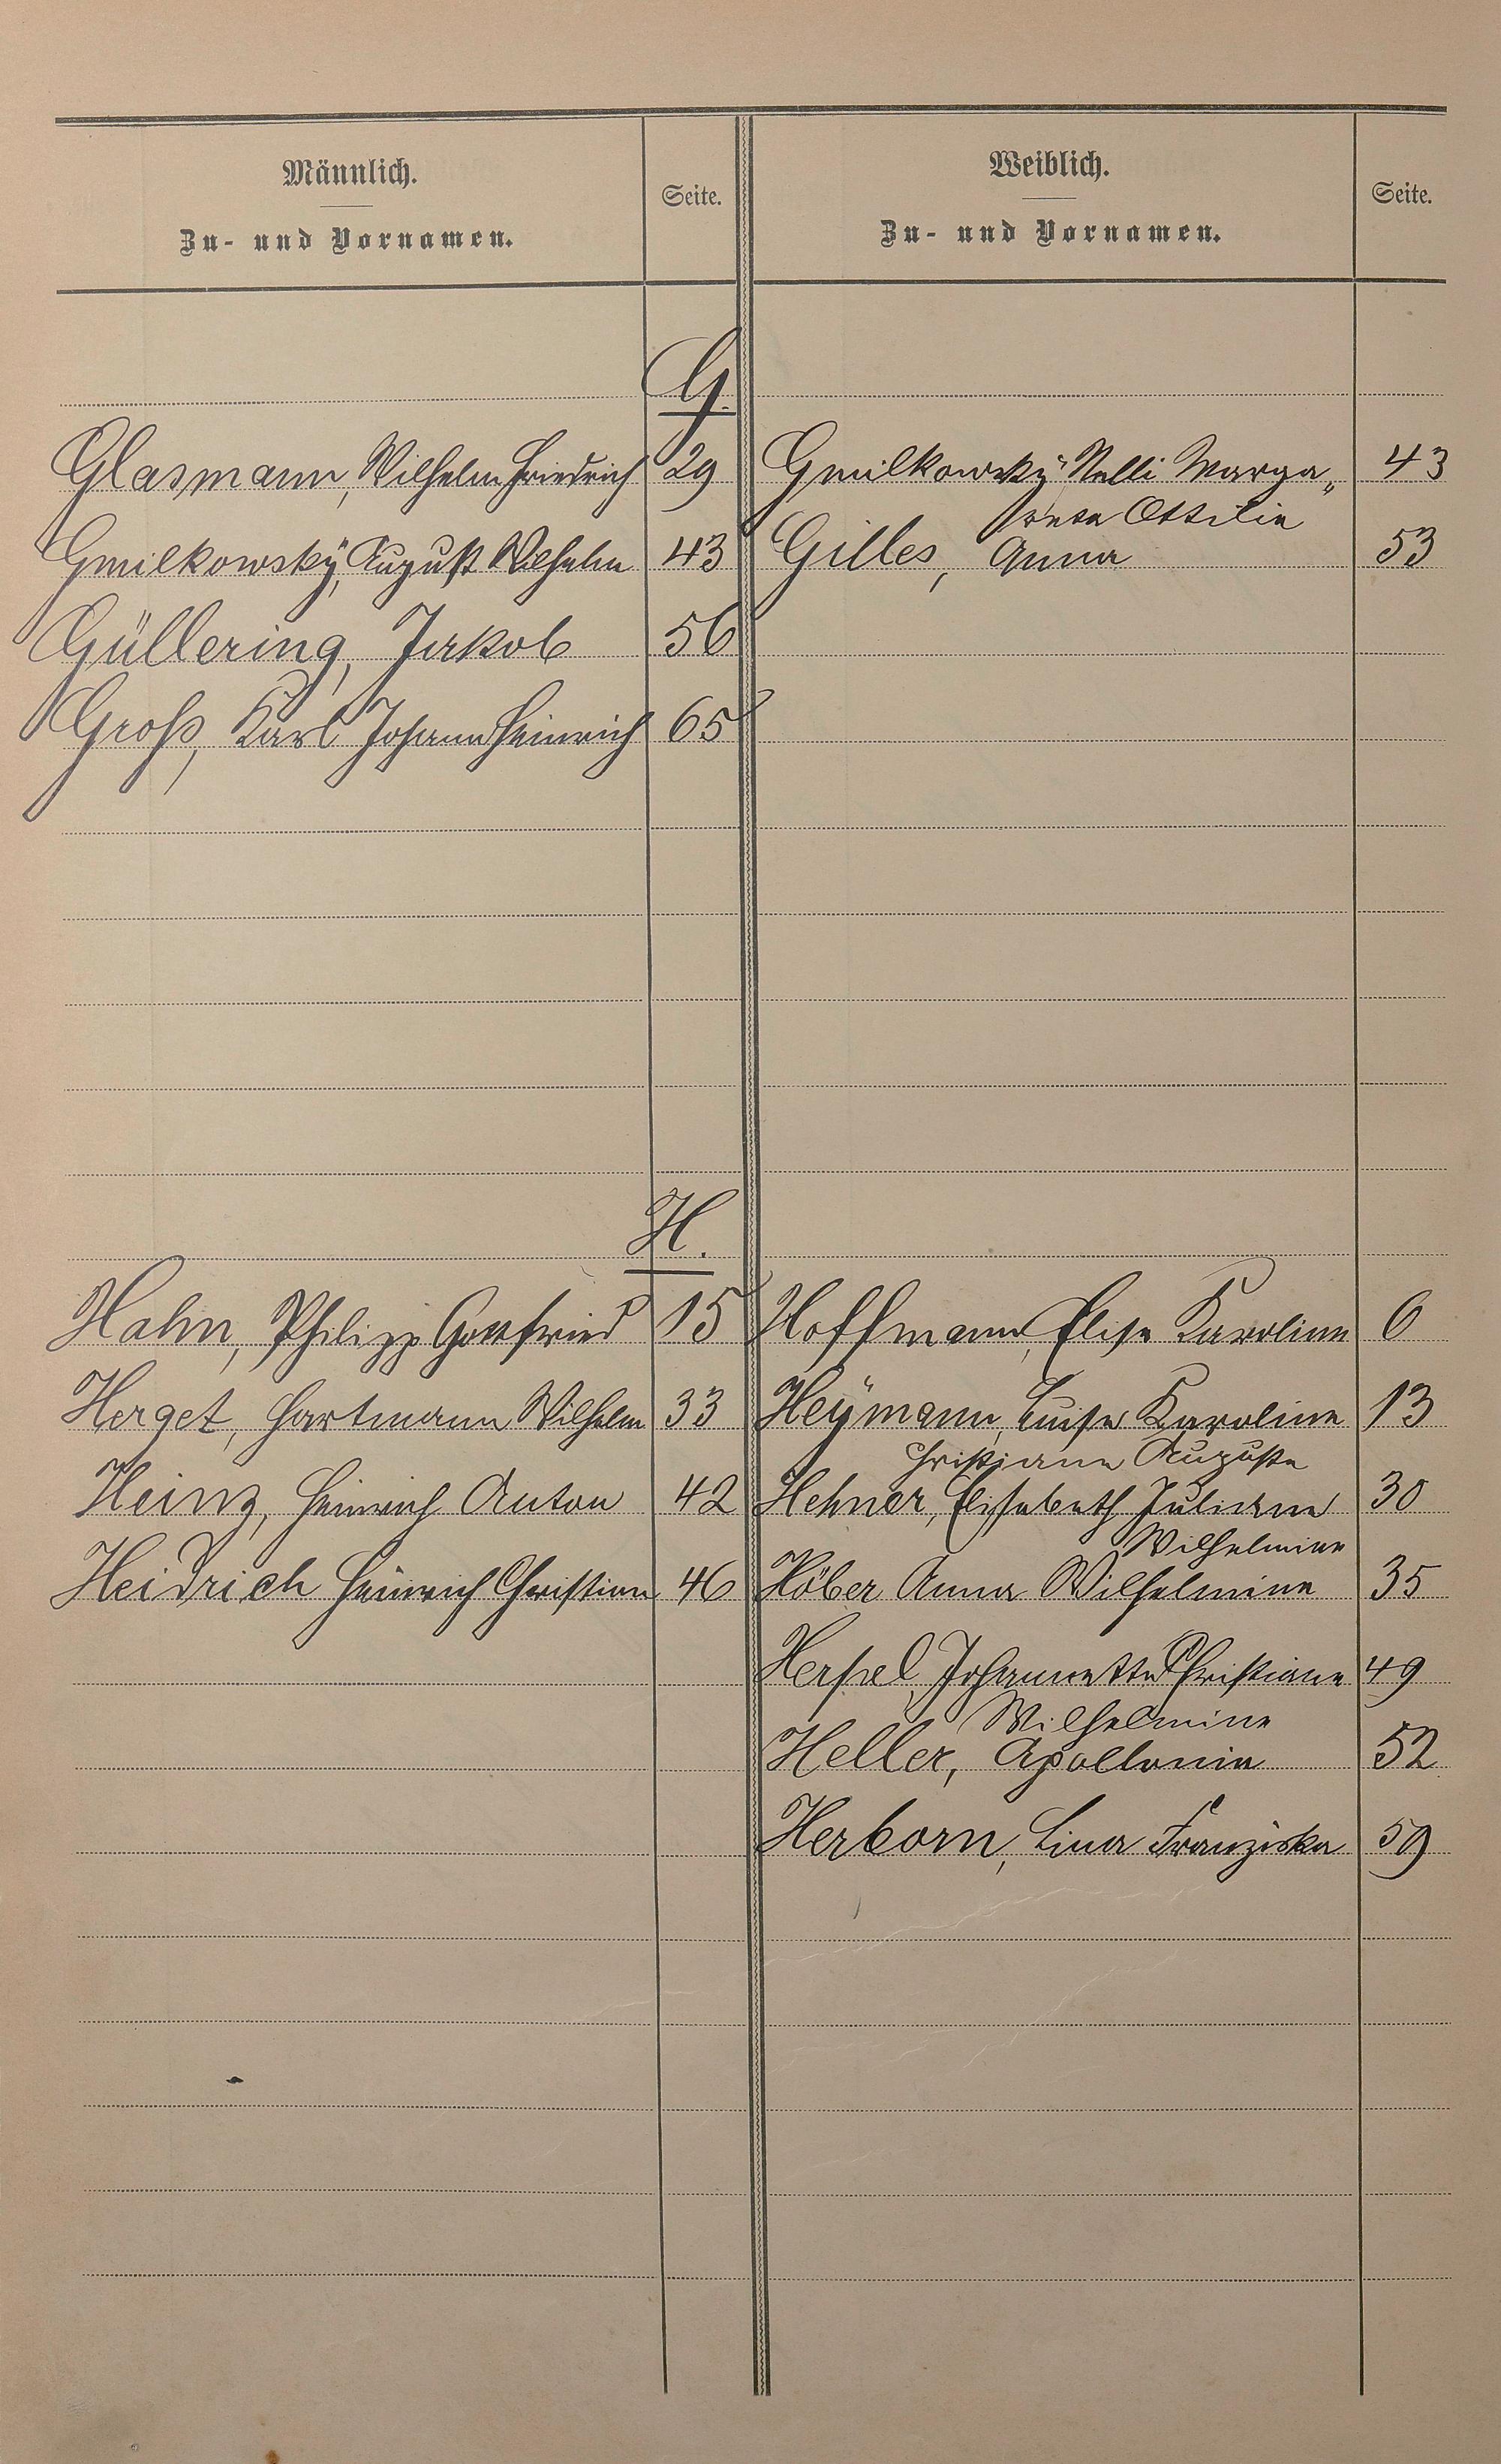 Männlich.
Zu- und Vornamen.
Seite.
Weiblich.
Zu- und Vornamen.
Seite.
G.
Glasmann, Wilhelm Friedrich 29
Gmilkowsky, August Wilhelm 43
Güllering, Jakob 56
Groß, Karl Johann Heinrich 65
Gmilkowsky, Nelli Marga„ 43
rete Ottilie
Gilles, Anna 53
H.
Hahn, Philipp Gottfried 15
Herget, Hartmann Wilhelm 33
Heinz, Heinrich Anton 42
Heidrich Heinrich Christian 46
Hoffmann, Elise Karoline 6
Heÿmann, Luise Karoline 13
Christiane Auguste
Hehner, Elisabeth Juliane 30
Wilhelmine
Höber Anna Wilhelmine 35
Herpel, Johannette Christiane 49
Wilhelmine
Heller, Apollonia 52
Herborn, Lina Franziska 59